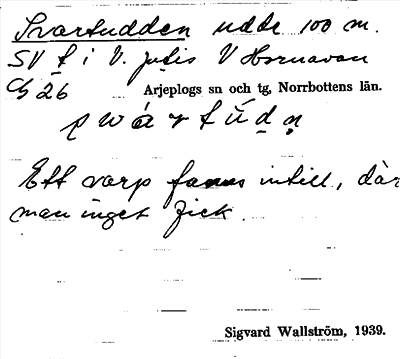 Svartudden udde 100 m.
SV t i V. jutis V Hornavan
26 Arjeplogs sn och tg, Norrbottens län.
Ett varp fanns intill, där
man inget fick.
Sigvard Wallström, 1939.